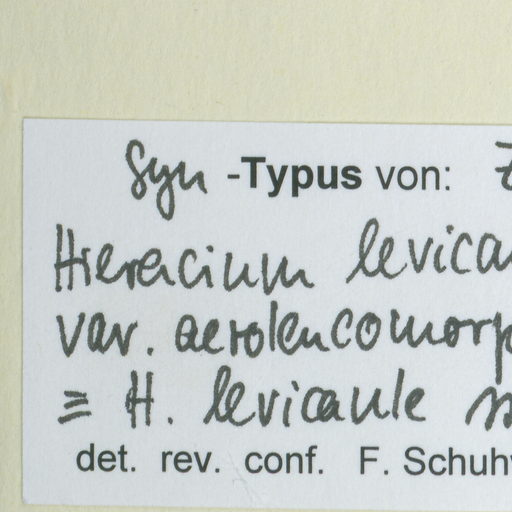 Syn -Typus von:
Hieracium levica
var. aeroleucomorp
≡ H. levicaule
det. rev. conf. F. Schuh